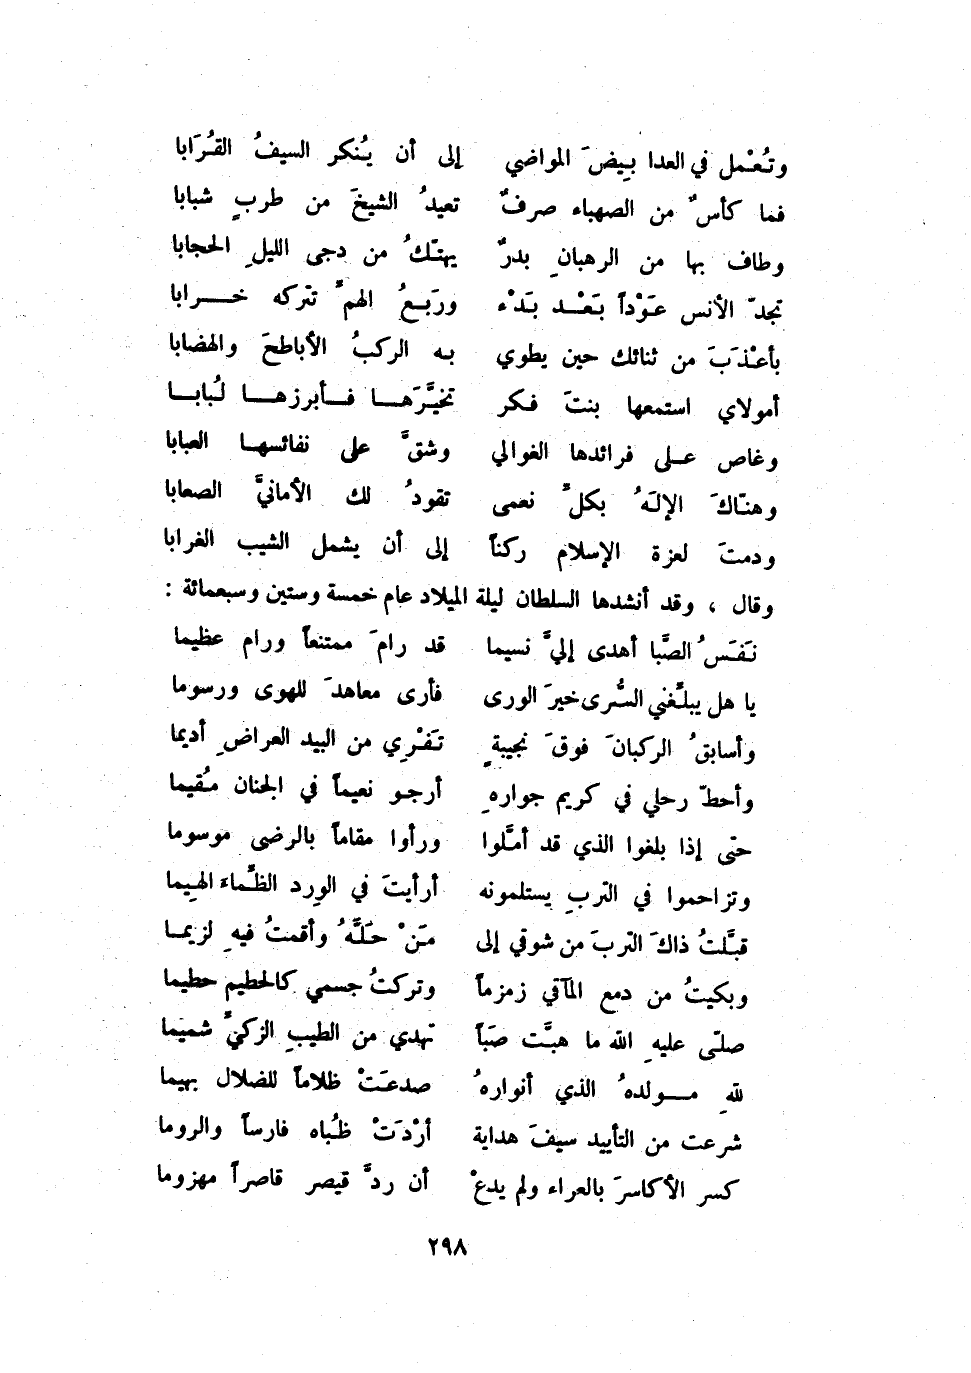 وتُعْمل في العدا بِيضَ المواضي إلى أن يُنكر السيفُ القُرَابا
فما كأسٌ من الصهباء صرفٌ تعيدُ الشيخَ من طربٍ شبابا
وطاف بها من الرهبانِ بدرٌ يهتّكُ من دجى الليلِ الحجابا
تجدّ الأنس عَوْداً بَعْد بَدْء ورَبعُ الهمِّ تتركه خرابا
بأعْذَبَ من ثنائك حين يطوي به الركبُ الأباطحَ والهضابا
أمولاي استمعها بنتَ فكر تخيَّرَها فأبرزها لُبابا
وغاص على فرائدها الغوالي وشقَّ على نفائسها العبابا
وهنّاكَ الإلَهُ بكلِّ نعمى تقودُ لك الأمانيَّ الصعابا
ودمتَ لعزة الإسلام ركناً إلى أن يشمل الشيب الغرابا
وقال ، وقد أنشدها السلطان ليلة الميلاد عام خمسة وستين وسبعمائة :
نَفَسُ الصَّبا أهدى إليَّ نسيما قد رامَ ممتنعاً ورام عظيما
يا هل يبلِّغني السُّرى خيرَ الورى فأرى معاهدَ للهوى ورسوما
وأسابقُ الركبانَ فوقَ نجيبةٍ تَفْرِي من البيد العراضِ أديما
وأحطّ رحلي في كريم جوارهِ أرجو نعيماً في الجنان مُقيما
حتى إذا بلغوا الذي قد أمَّلوا ورأوا مقاماً بالرضى موسوما
وتزاحموا في التربِ يستلمونه أرأيتَ في الوِرد الظِّماءَ الهِيما
قبَّلتُ ذاكَ التربَ من شوقي إلى مَنْ حَلَّهُ وأقمتُ فيهِ لزيما
وبكيتُ من دمع المآقي زمزماً وتركتُ جسمي كالحطيمِ حطيما
صلّى عليهِ الله ما هبَّت صَباً تهدي من الطيبِ الزكيِّ شميما
للهِ مولدهُ الذي أنوارهُ صدعَتْ ظلاماً للضلال بهيما
شرعت من التأييد سيفَ هداية أرْدَتْ ظُباه فارساً والروما
كسر الأكاسرَ بالعراء ولم يدعْ أن ردَّ قيصر قاصراً مهزوما
٢٩٨